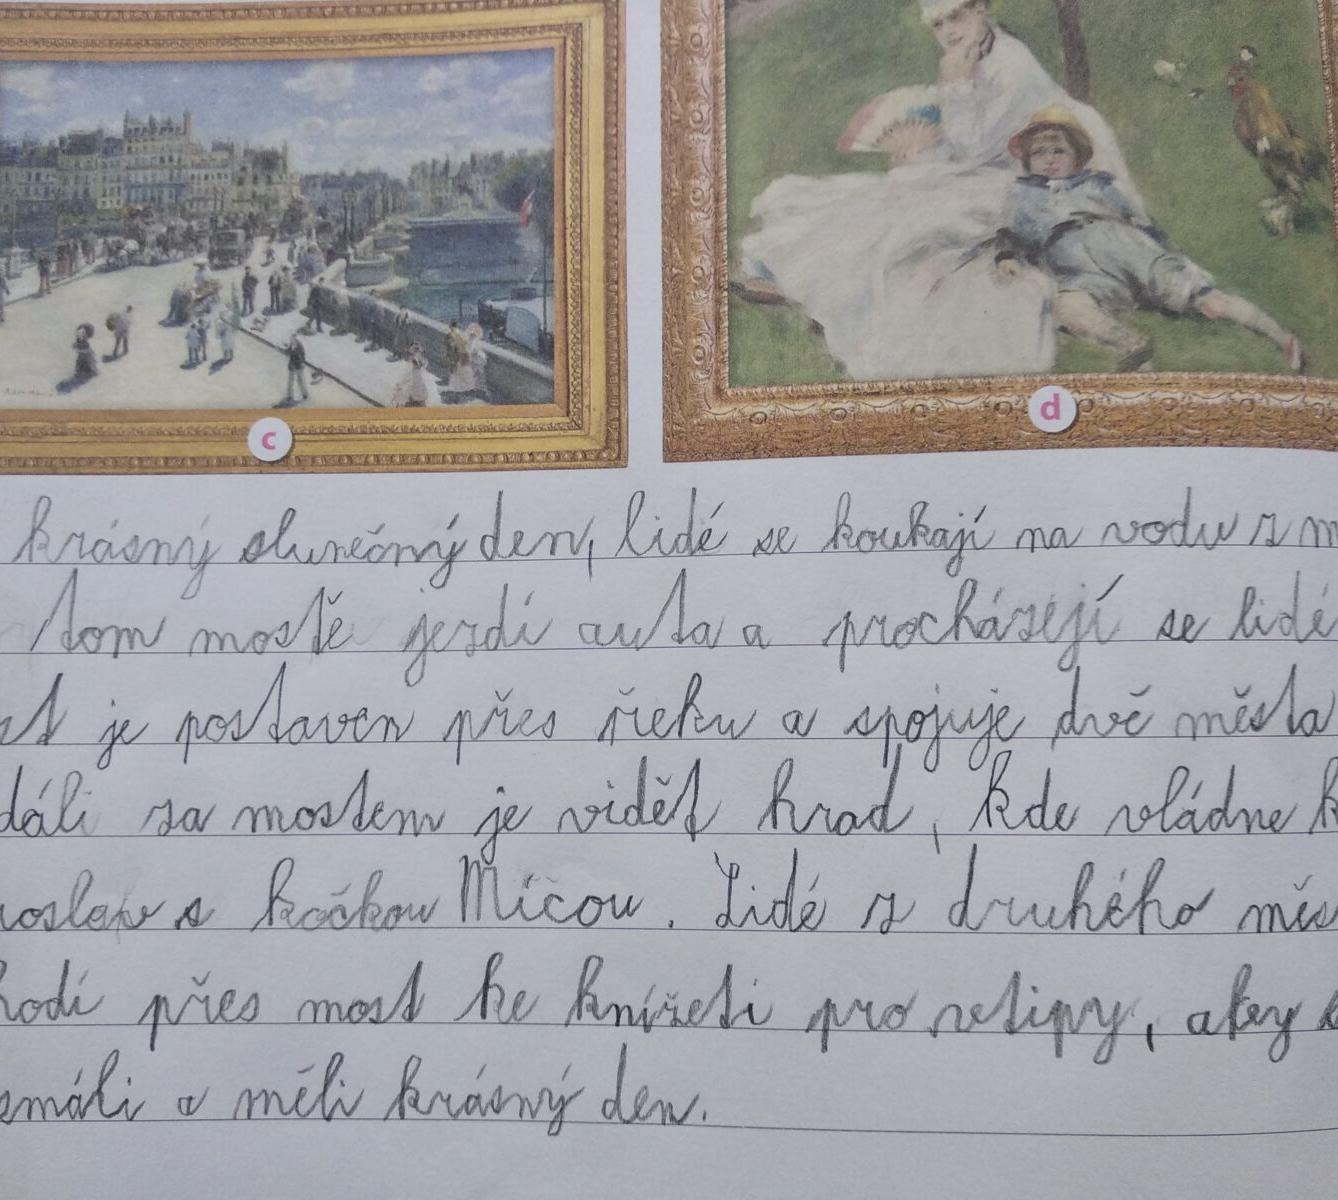 c
d
krásný slunečný den, lidé se koukají na vodu z m
tom mostě jezdí auta a procházejí se lidé
st je postaven přes řeku a spojuje dvě města
dáli za mostem je vidět hrad, kde vládne k
roslav s kočkou Mícou. Lidé z druhého měs
hodí přes most ke knížeti pro vtipy, aby s
smáli a měli krásný den.